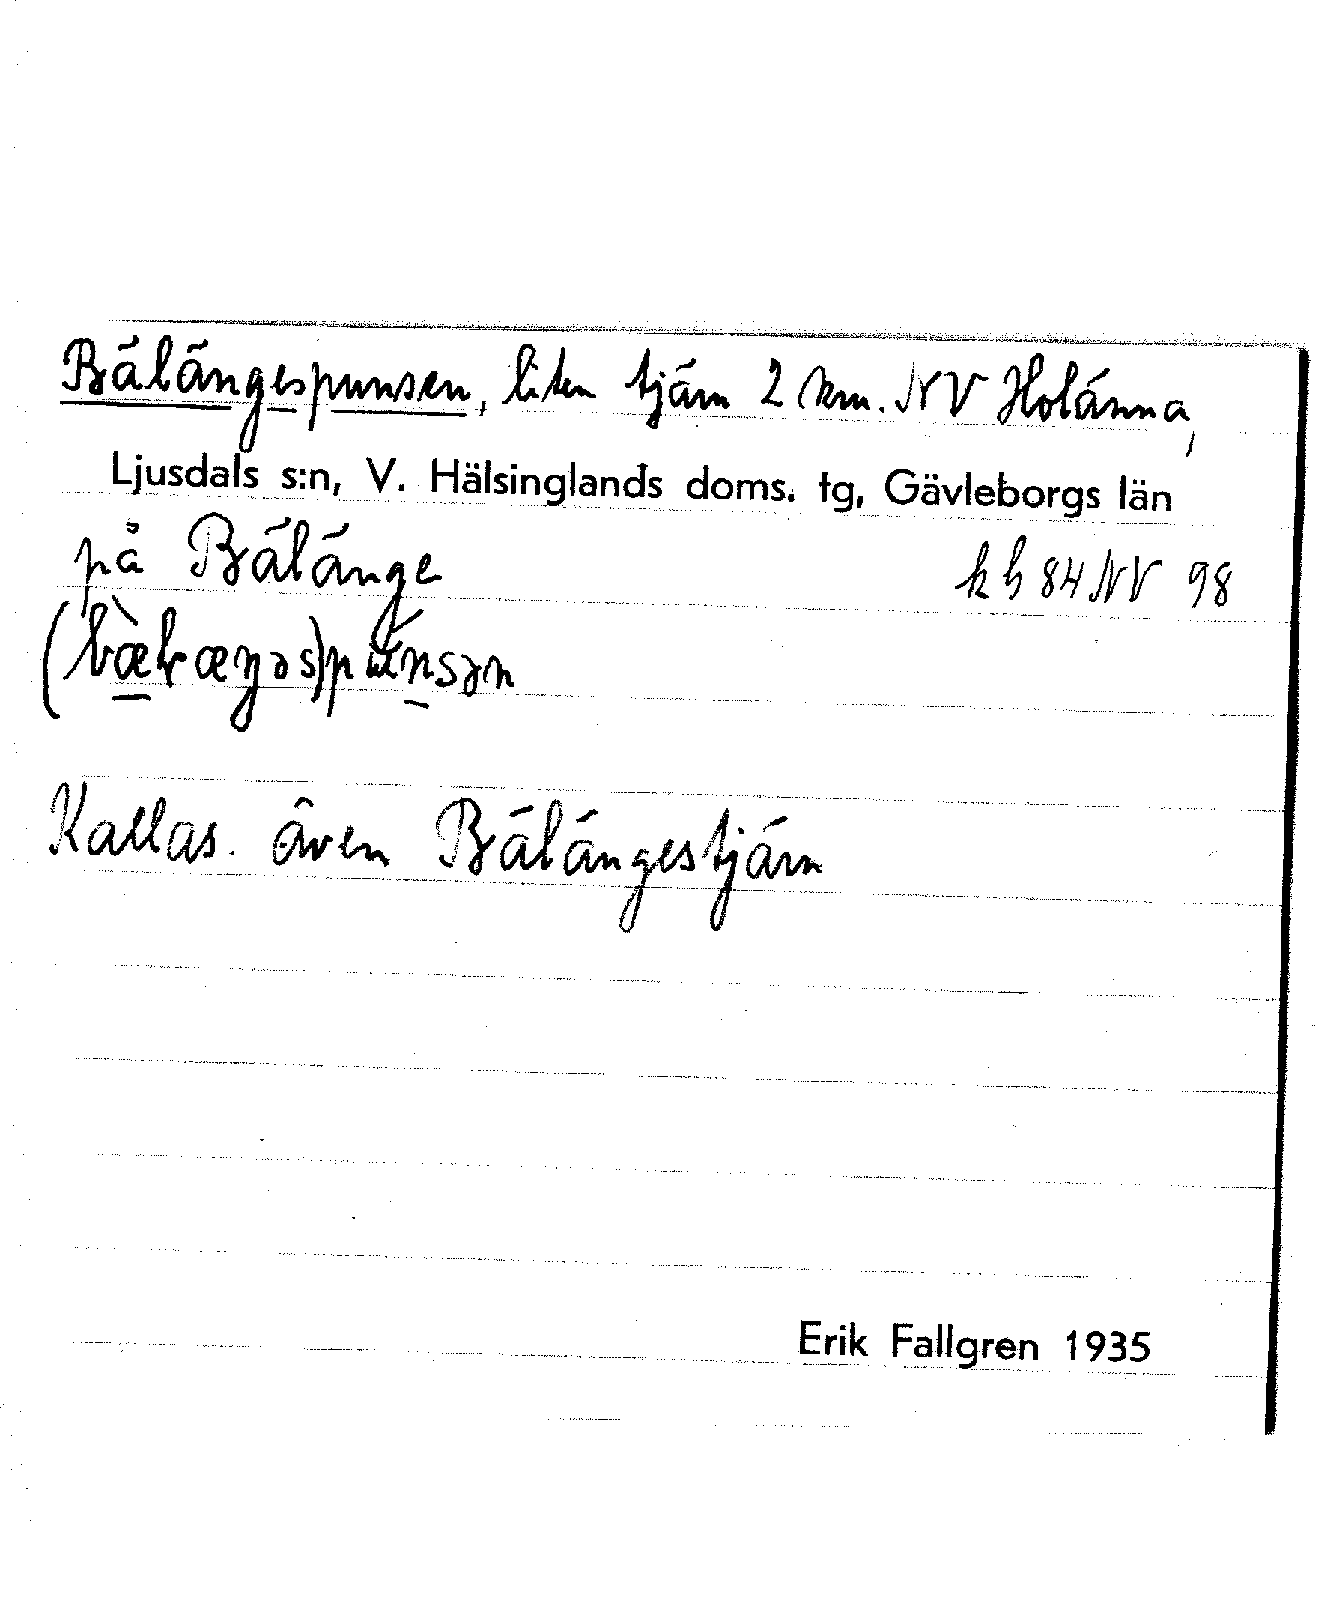 Bälängespunsen, liten tjärn 2 km. NV Holänna,
Ljusdals s:n, V. Hälsinglands doms. tg, Gävleborgs län
på Bälänge kb 84 NV 98
Kallas. även Bälängestjärn
Erik Fallgren 1935